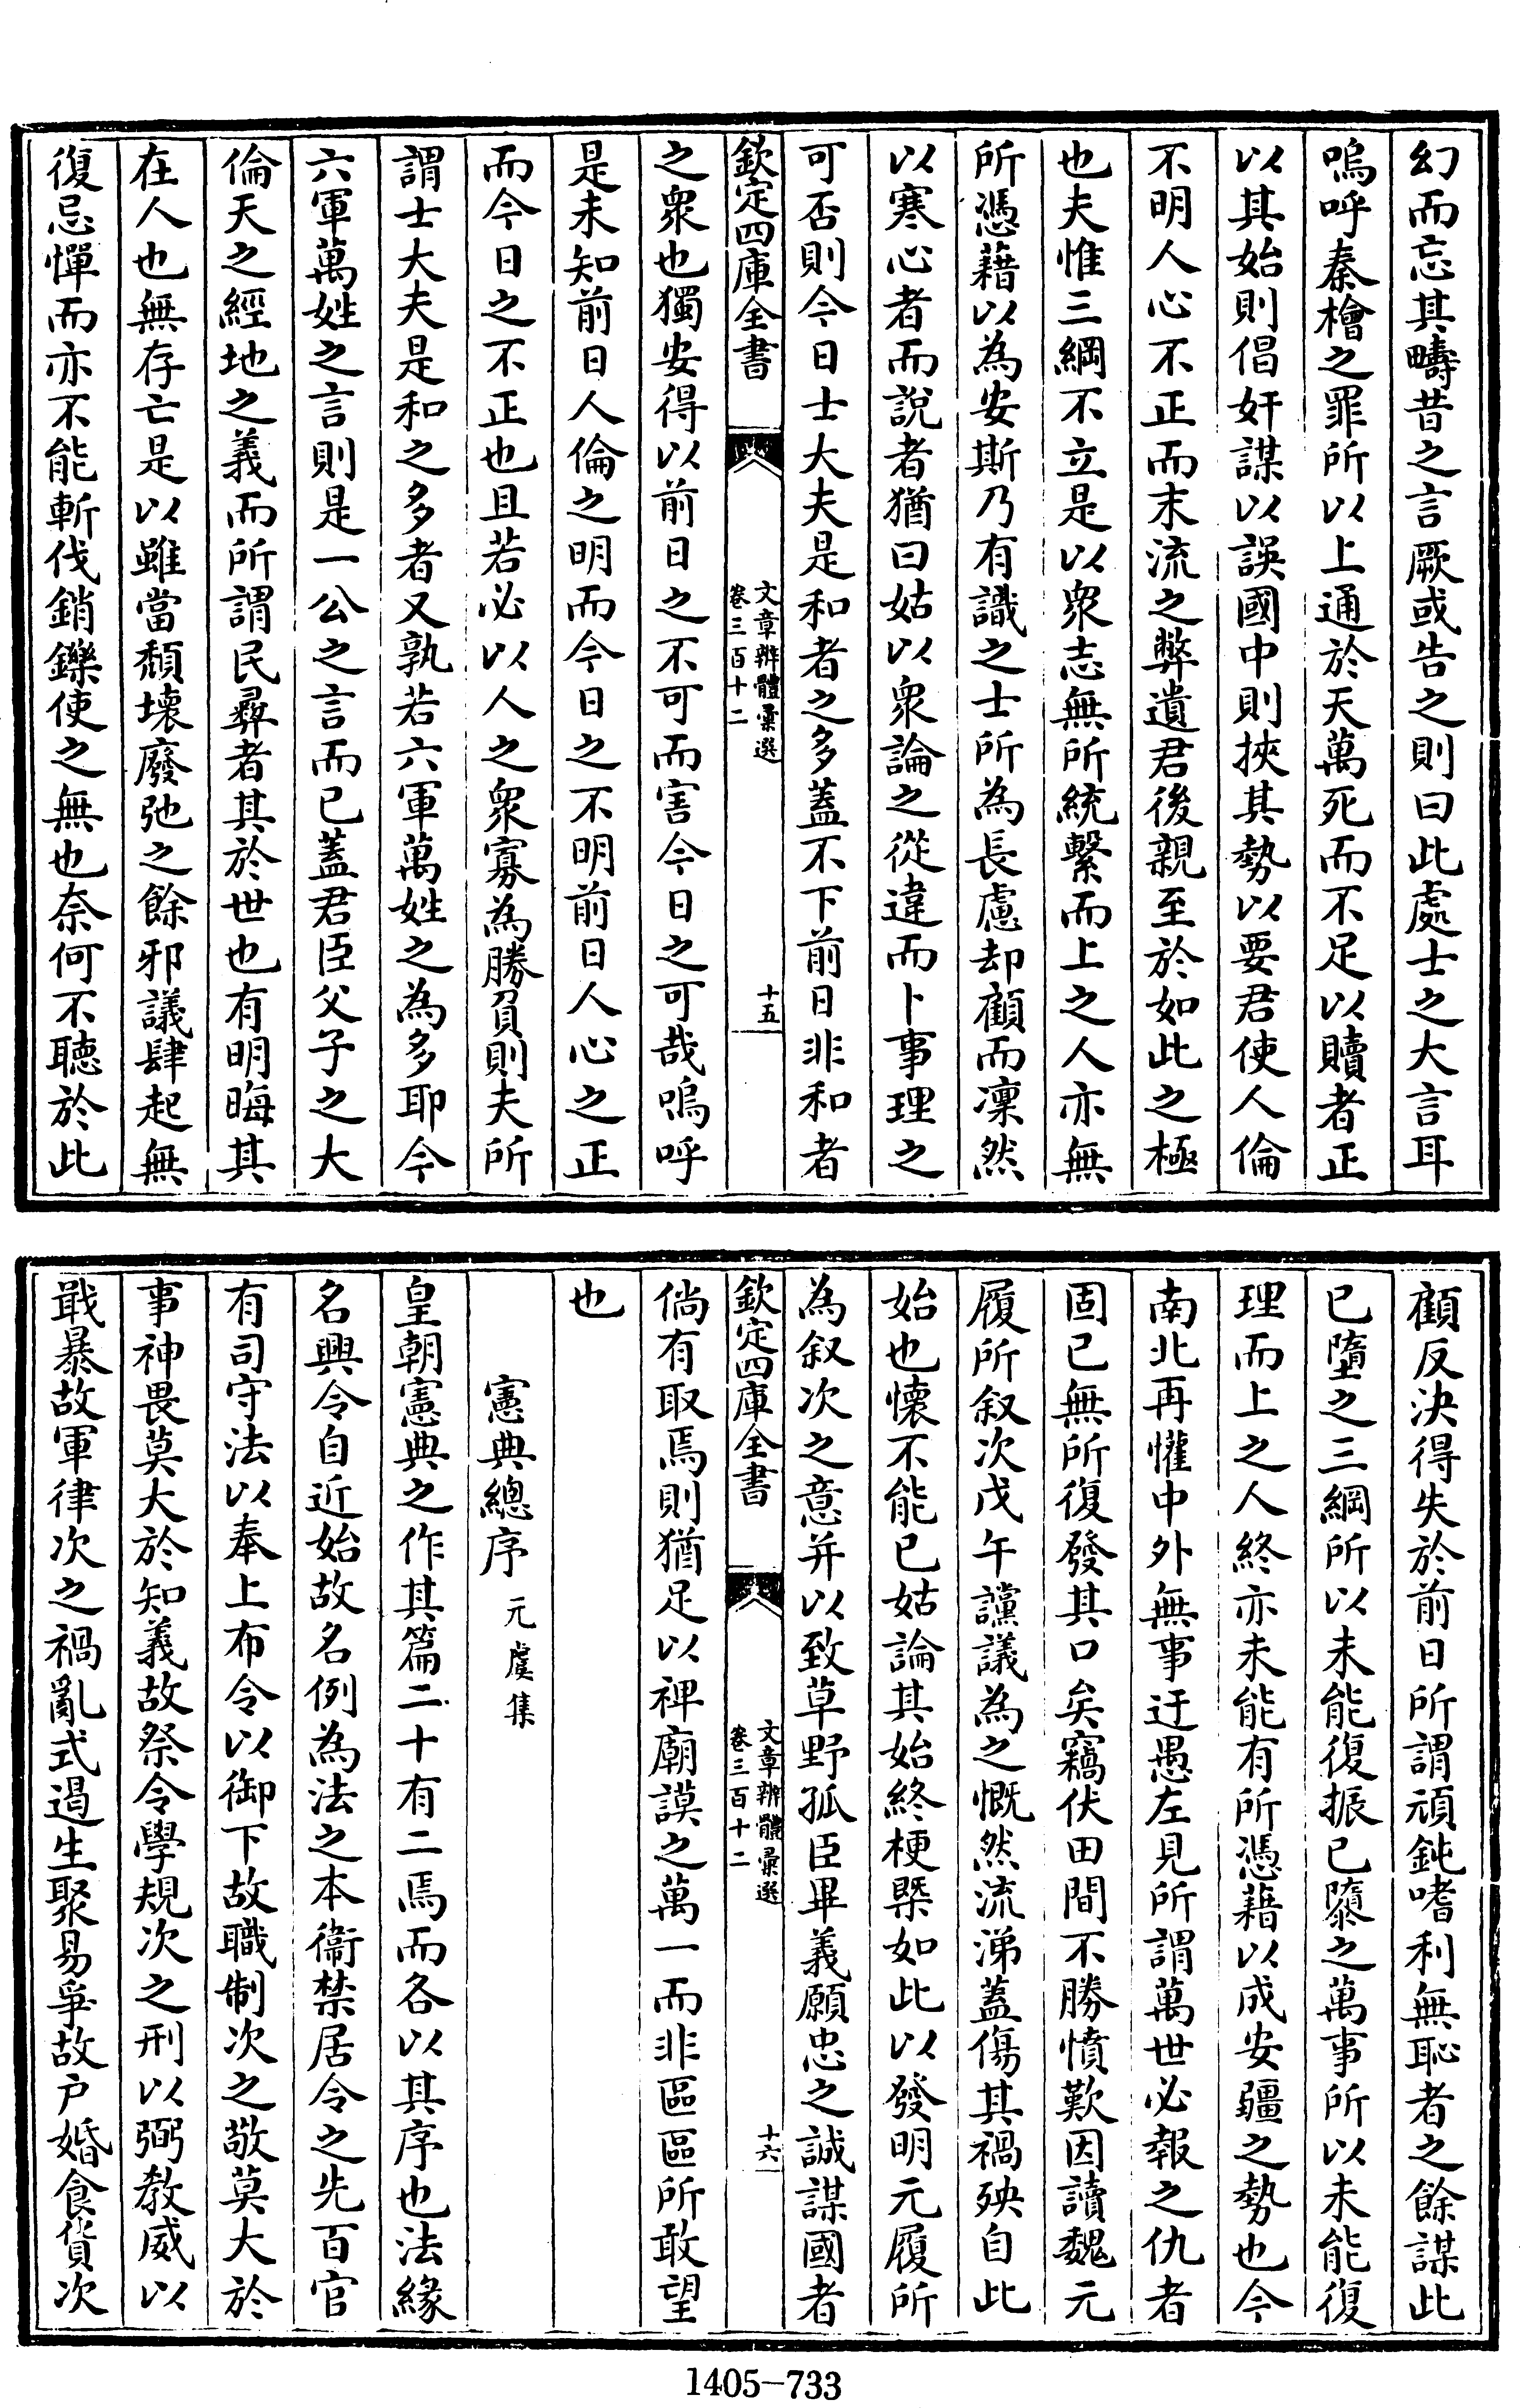 幻而忘其疇昔之言厥或告之則曰此處士之大言耳
嗚呼秦檜之罪所以上通於天萬死而不足以贖者正
以其始則倡奸謀以誤國中則挾其勢以要君使人倫
不明人心不正而末流之弊遺君後親至於如此之極
也夫惟三綱不立是以衆志無所統繫而上之人亦無
所憑藉以為安斯乃有識之士所為長慮却顧而凜然
以寒心者而說者猶曰姑以衆論之從違而卜事理之
可否則今日士大夫是和者之多蓋不下前日非和者
欽定四庫全書
文章辨體彙選
卷三百十二
十五
之衆也獨安得以前日之不可而害今日之可哉嗚呼
是未知前日人倫之明而今日之不明前日人心之正
而今日之不正也且若必以人之衆寡為勝負則夫所
謂士大夫是和之多者又孰若六軍萬姓之為多耶今
六軍萬姓之言則是一公之言而已蓋君臣父子之大
倫天之經地之義而所謂民彛者其於世也有明晦其
在人也無存亡是以雖當頹壞廢弛之餘邪議肆起無
復忌憚而亦不能斬伐銷鑠使之無也奈何不聽於此
顧反決得失於前日所謂頑鈍嗜利無恥者之餘謀此
已墮之三綱所以未能復振已隳之萬事所以未能復
理而上之人終亦未能有所憑藉以成安疆之勢也今
南北再懽中外無事迂愚左見所謂萬世必報之仇者
固已無所復發其口矣竊伏田間不勝憤歎因讀魏元
履所叙次戊午讜議為之慨然流涕蓋傷其禍殃自此
始也懷不能已姑論其始終梗槩如此以發明元履所
為叙次之意并以致草野孤臣畢義願忠之誠謀國者
欽定四庫全書
文章辨體彙選
卷三百十二
十六
倘有取焉則猶足以裨廟謨之萬一而非區區所敢望
也
憲典總序 元虞集
皇朝憲典之作其篇二十有二焉而各以其序也法緣
名興令自近始故名例為法之本衞禁居令之先百官
有司守法以奉上布令以御下故職制次之敬莫大於
事神畏莫大於知義故祭令學規次之刑以弼教威以
戢暴故軍律次之禍亂式遏生聚易爭故户婚食貨次
1405-733